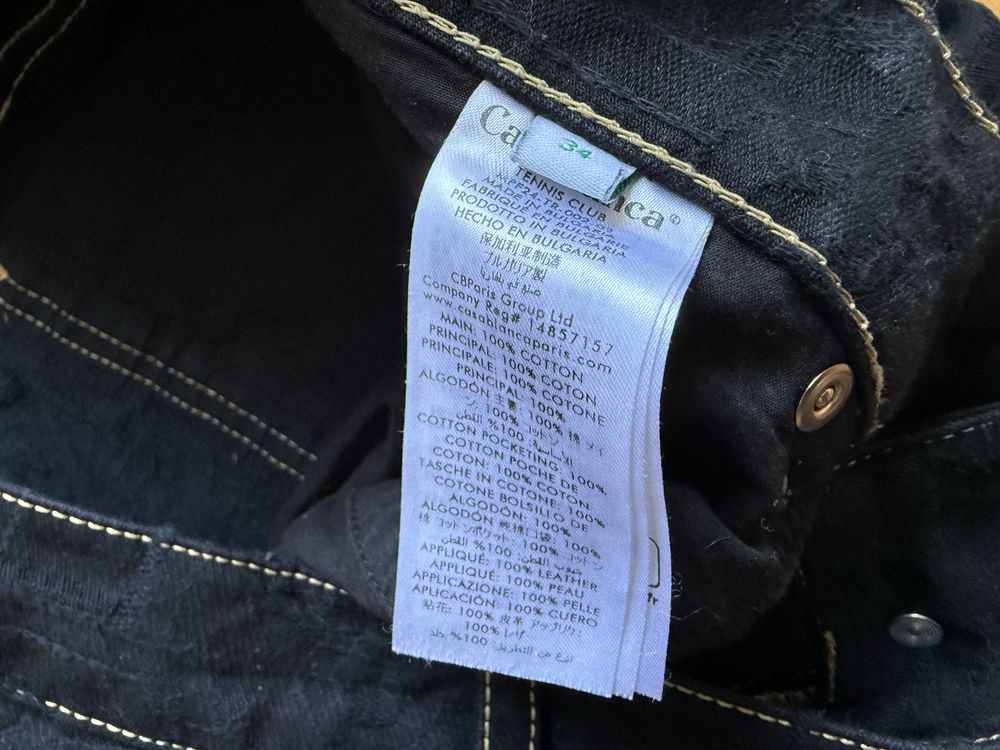 Ca
34
nca®
TENNIS CLUB
MADE IN BULGARIA
FABRIQUÉ EN BULGARIE
PRODOTTO IN BULGARIA
HECHO EN BULGARIA
保加利亚制造
ブルガリア製
CBParis Group Ltd
Company Reg# 14857157
www.casablancaparis.com
MAIN: 100% COTTON
PRINCIPAL: 100% COTON
PRINCIPALE: 100% COTONE
PRINCIPAL: 100%
ALGODÓN 主要: 100% 棉 メイ
ン: 100% コットン
100% القطن
COTTON POCKETING: 100%
COTTON POCHE DE
COTON: 100% COTON
TASCHE IN COTONE: 100%
COTONE BOLSILLO DE
ALGODÓN: 100%
ALGODÓN 純棉口袋: 100%
棉 コットンポケット: 100% コットン
100% القطن
APPLIQUE: 100% LEATHER
APPLIQUÉ: 100% PEAU
APPLICAZIONE: 100% PELLE
APLICACIÓN: 100% CUERO
贴花: 100% 皮革 アップリケ:
100% レザー
نوع من التطريز: 100% جلد